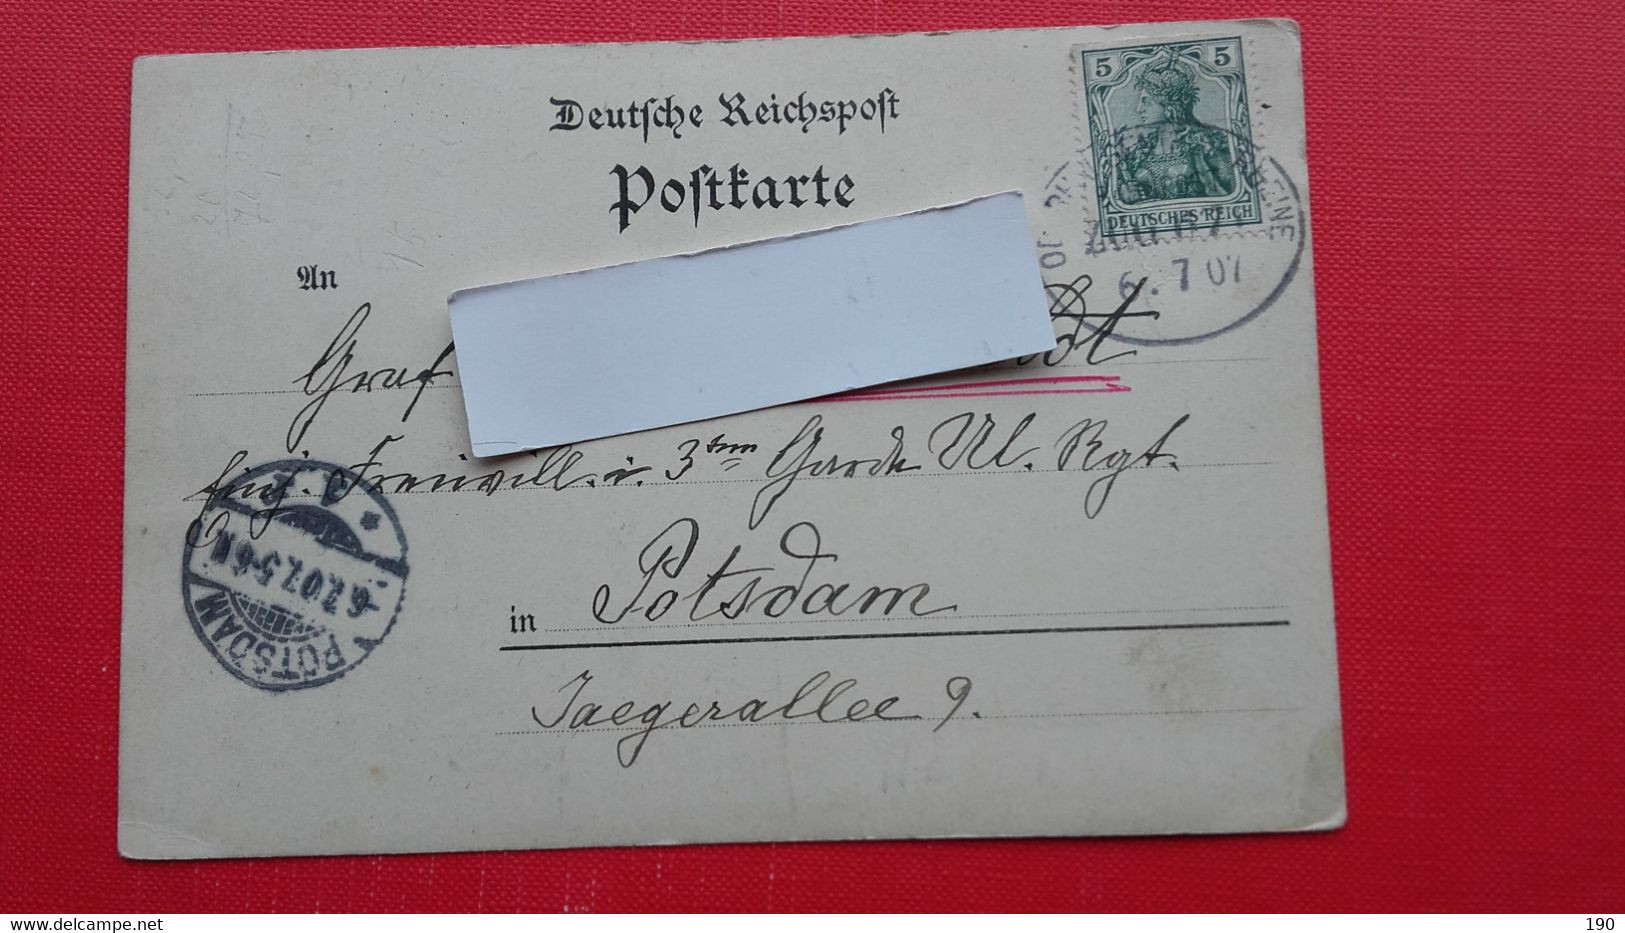 Deutsche Reichspost
Postkarte
5 5
DEUTSCHES REICH
RHEINE
6. 7 07
An
Graf
Einj. Freiwill. i. 3tem Garde Ul. Rgt.
in Potsdam
Jaegerallee 9.
POTSDAM
-6.7.07.5-6N
190